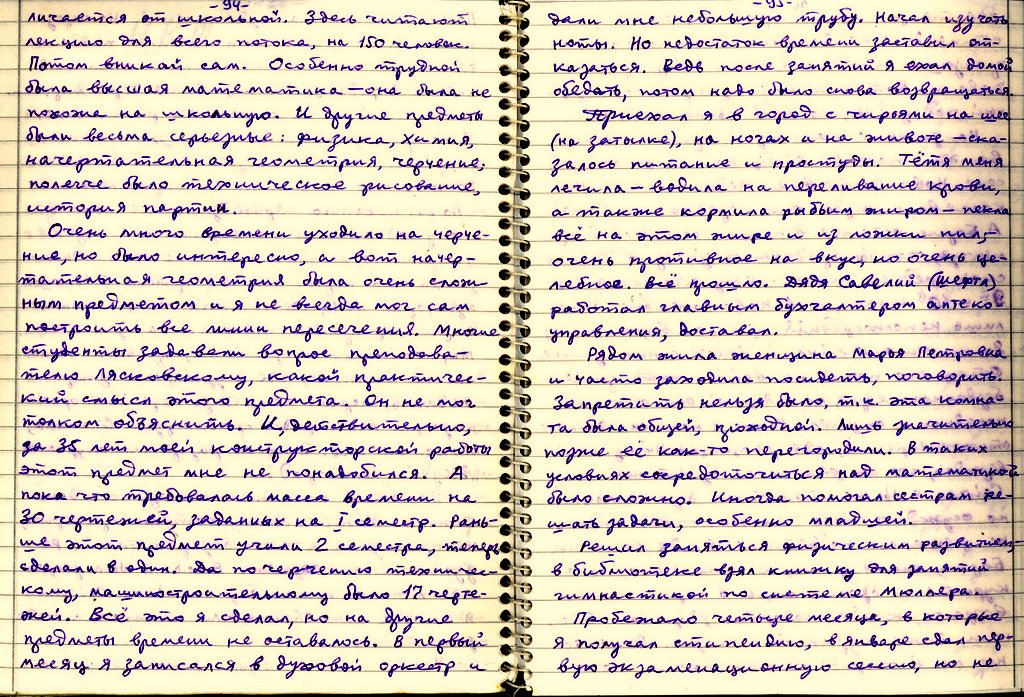 -94-
личается от школьной. Здесь читают
лекцию для всего потока, на 150 человек.
Потом вникай сам. Особенно трудной
была высшая математика — она была не
похожа на школьную. И другие предметы
были весьма серьезные: физика, химия,
начертательная геометрия, черчение;
полегче было техническое рисование,
история партии.
Очень много времени уходило на черче-
ние, но было интересно, а вот начер-
тательная геометрия была очень слож-
ным предметом и я не всегда мог сам
построить все линии пересечения. Многие
студенты задавали вопрос преподава-
телю Лясковскому, какой практичес-
кий смысл этого предмета. Он не мог
толком объяснить. И, действительно,
за 35 лет моей конструкторской работы
этот предмет мне не понадобился. А
пока что требовалась масса времени на
30 чертежей, заданных на I семестр. Рань-
ше этот предмет учили 2 семестра, теперь
сделали в один. Да по черчению техничес-
кому, машиностроительному было 17 черте-
жей. Всё это я сделал, но на другие
предметы времени не оставалось. В первый
месяц я записался в духовой оркестр и
-95-
дали мне небольшую трубу. Начал изучать
ноты. Но недостаток времени заставил от-
казаться. Ведь после занятий я ехал домой
обедать, потом надо было снова возвращаться.
Приехал я в город с чирьями на шее
(на затылке), на ногах и на животе — ска-
залось питание и простуды. Тётя меня
лечила — водила на переливание крови,
а также кормила рыбьим жиром — пекла
всё на этом жире и из ложки пил,—
очень противное на вкус, но очень це-
лебное. Всё прошло. Дядя Савелий
работал главным бухгалтером аптеко-
управления, доставал.
Рядом жила женщина Марья Петровна
и часто заходила посидеть, поговорить.
Запретить нельзя было, т.к. эта комна-
та была общей, проходной. Лишь значительно
позже её как-то перегородили. В таких
условиях сосредоточиться над математикой
было сложно. Иногда помогал сестрам ре-
шать задачи, особенно младшей.
Решил заняться физическим развитием—
в библиотеке взял книжку для занятий
гимнастикой по системе Мюллера.
Пробежало четыре месяца, в которые
я получал стипендию, в январе сдал пер-
вую экзаменационную сессию, но не